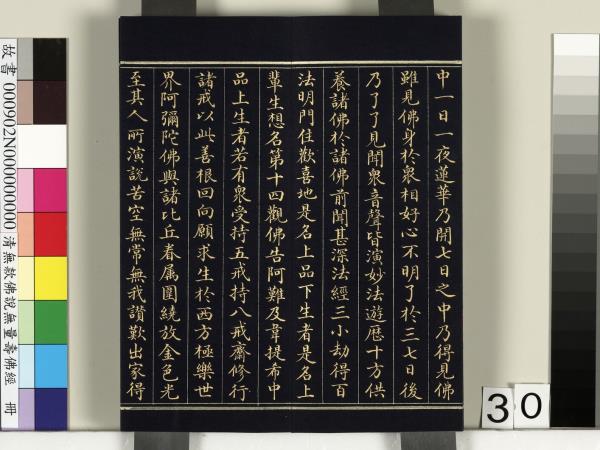 中一日一夜蓮華乃開七日之中乃得見佛
雖見佛身於衆相好心不明了於三七日後
乃了了見聞衆音聲皆演妙法遊歷十方供
養諸佛於諸佛前聞甚深法經三小劫得百
法明門住歡喜地是名上品下生者是名上
輩生想名第十四觀佛告阿難及韋提希中
品上生者若有衆受持五戒持八戒齋修行
諸戒以此善根回向願求生於西方極樂世
界阿彌陀佛與諸比丘眷属圍繞放金色光
至其人所演說苦空無常無我讚歎出家得
故書 000902N000000000 清無款佛說無量壽佛經 冊
30